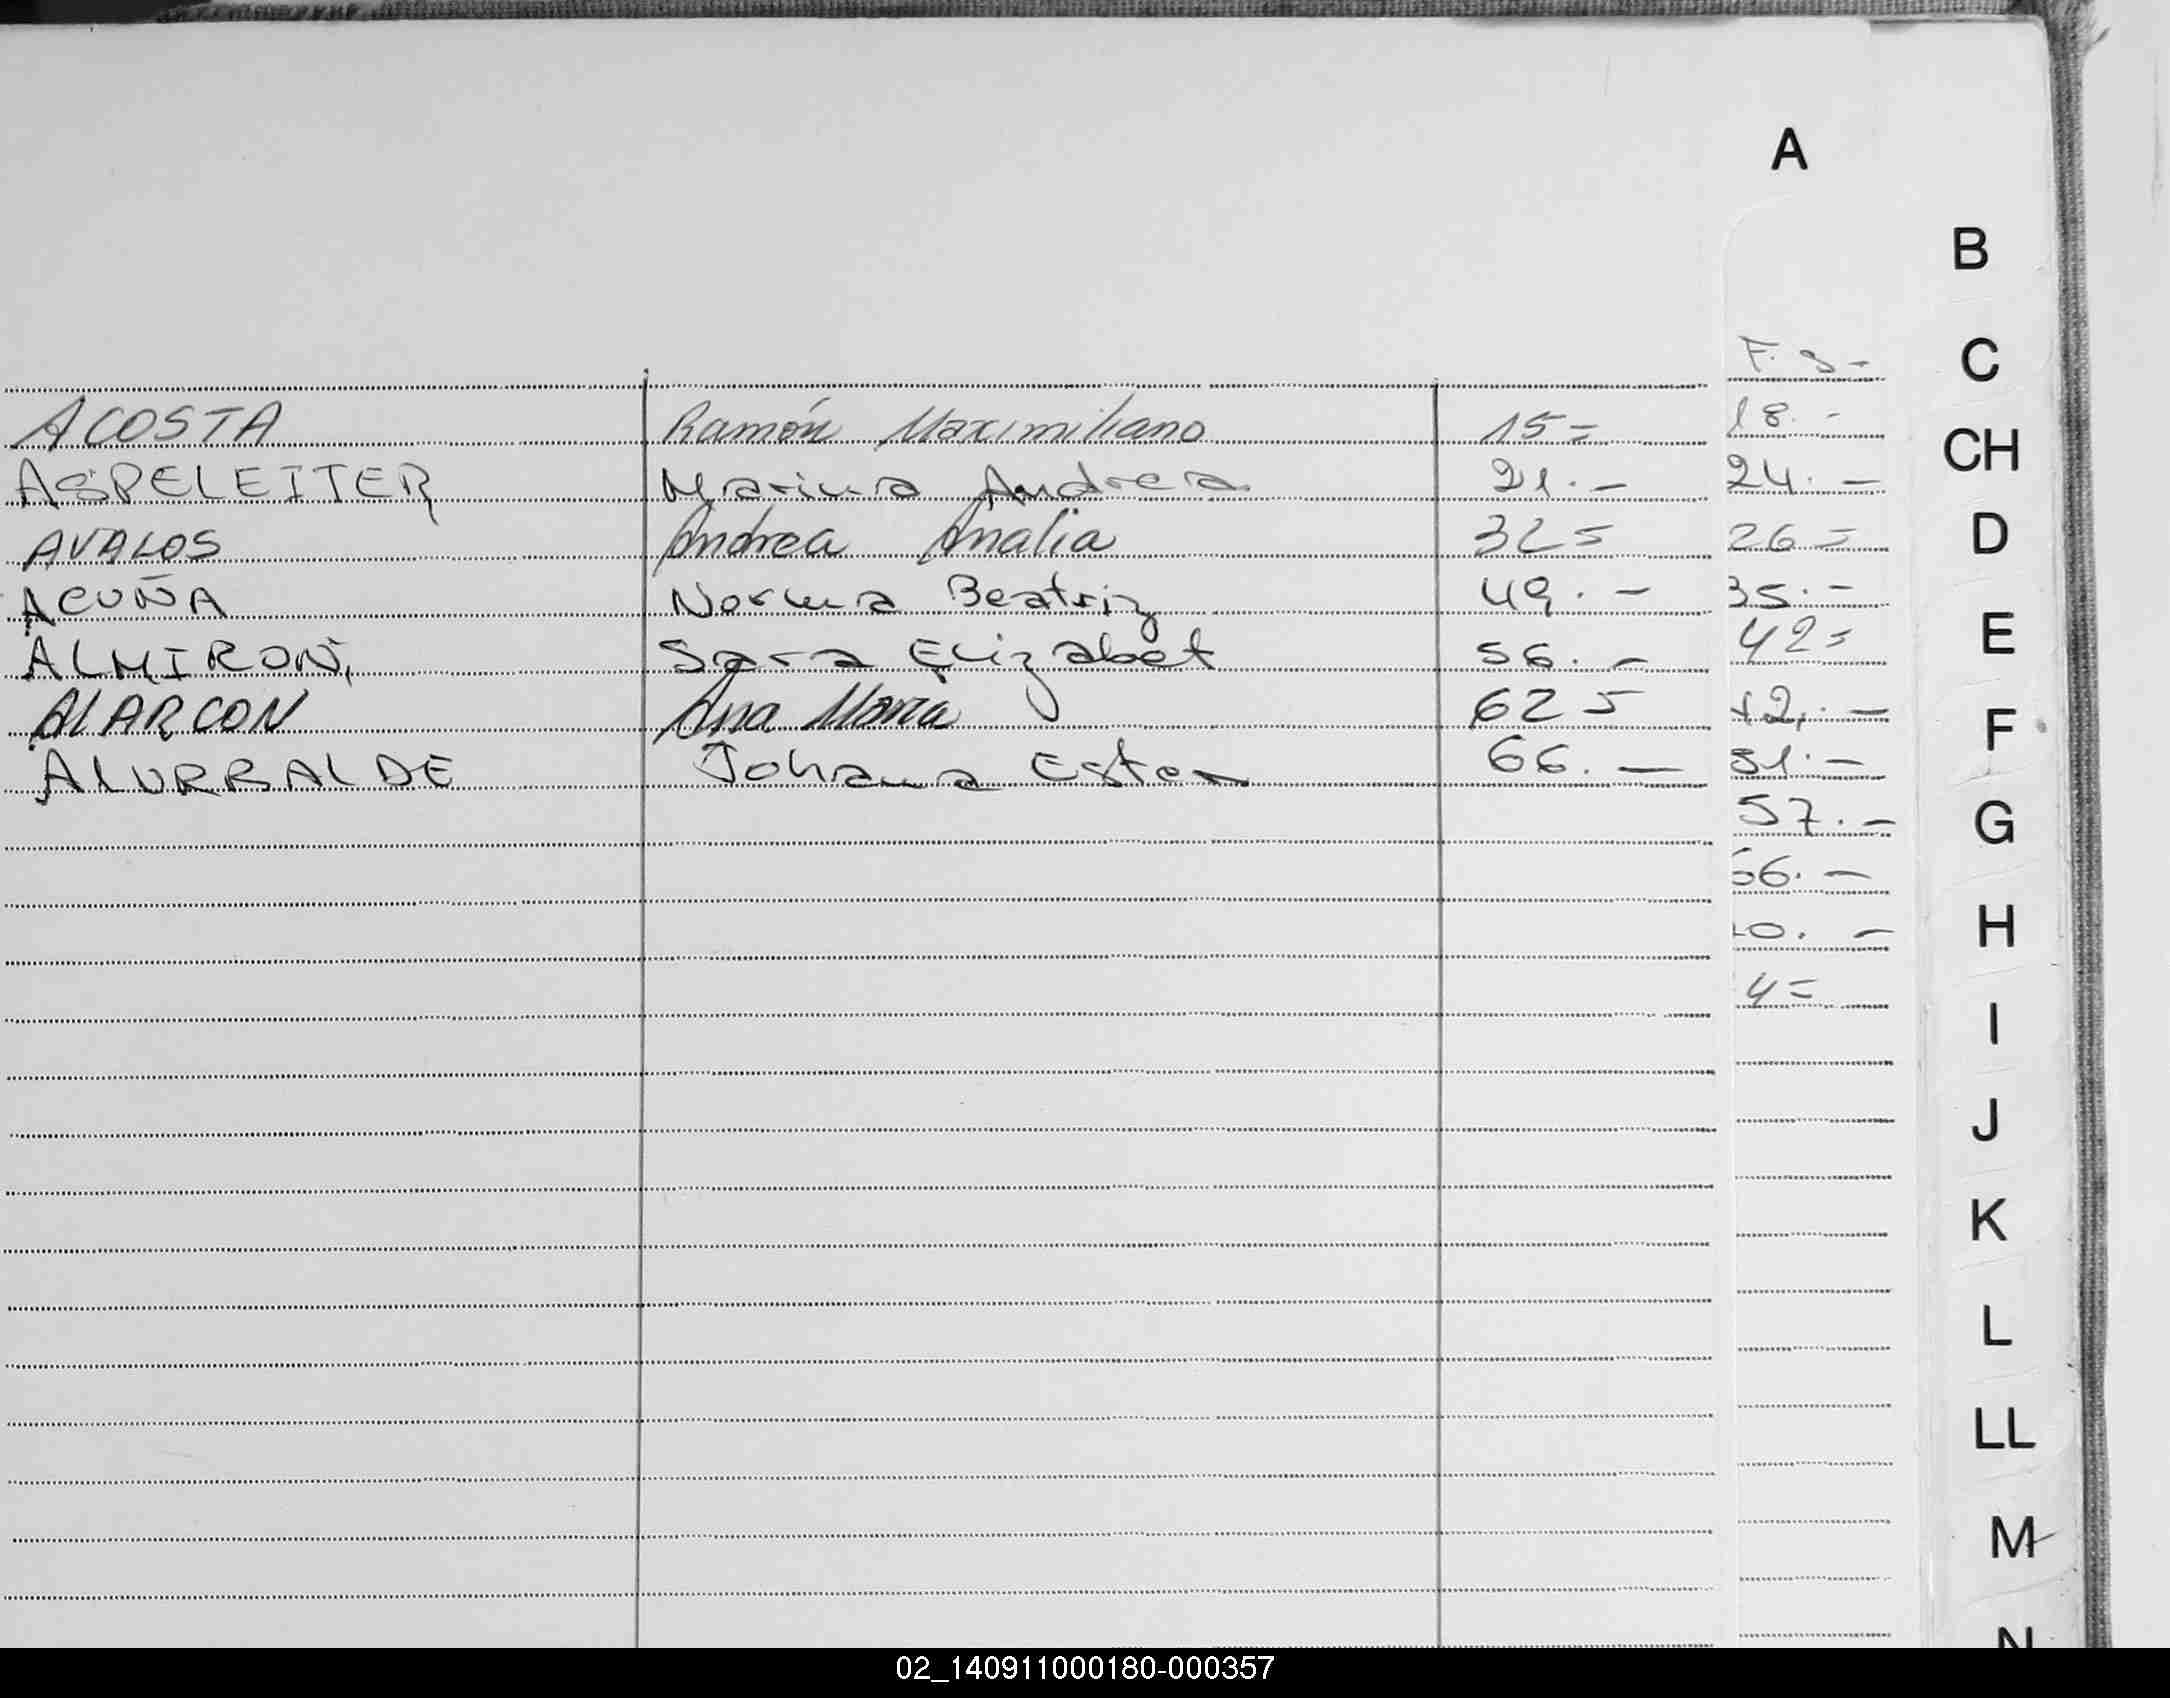 A
B
F. S-
C
ACOSTA Ramón Maximiliano 15= 18.-
CH
ASPELEITER Marina Andrea 21.- 24.-
AVALOS Andrea Analia 32= 26=
D
ACUÑA Norma Beatriz 49.- 35.-
E
ALMIRON, Sara Elizabet 56.- 42=
ALARCON Ana Maria 62= 42,.-
F
ALURRALDE Johana Ester 66.- 51.-
57.-
G
66.-
H
0.-
4=
I
J
K
L
LL
M
N
02_140911000180-000357